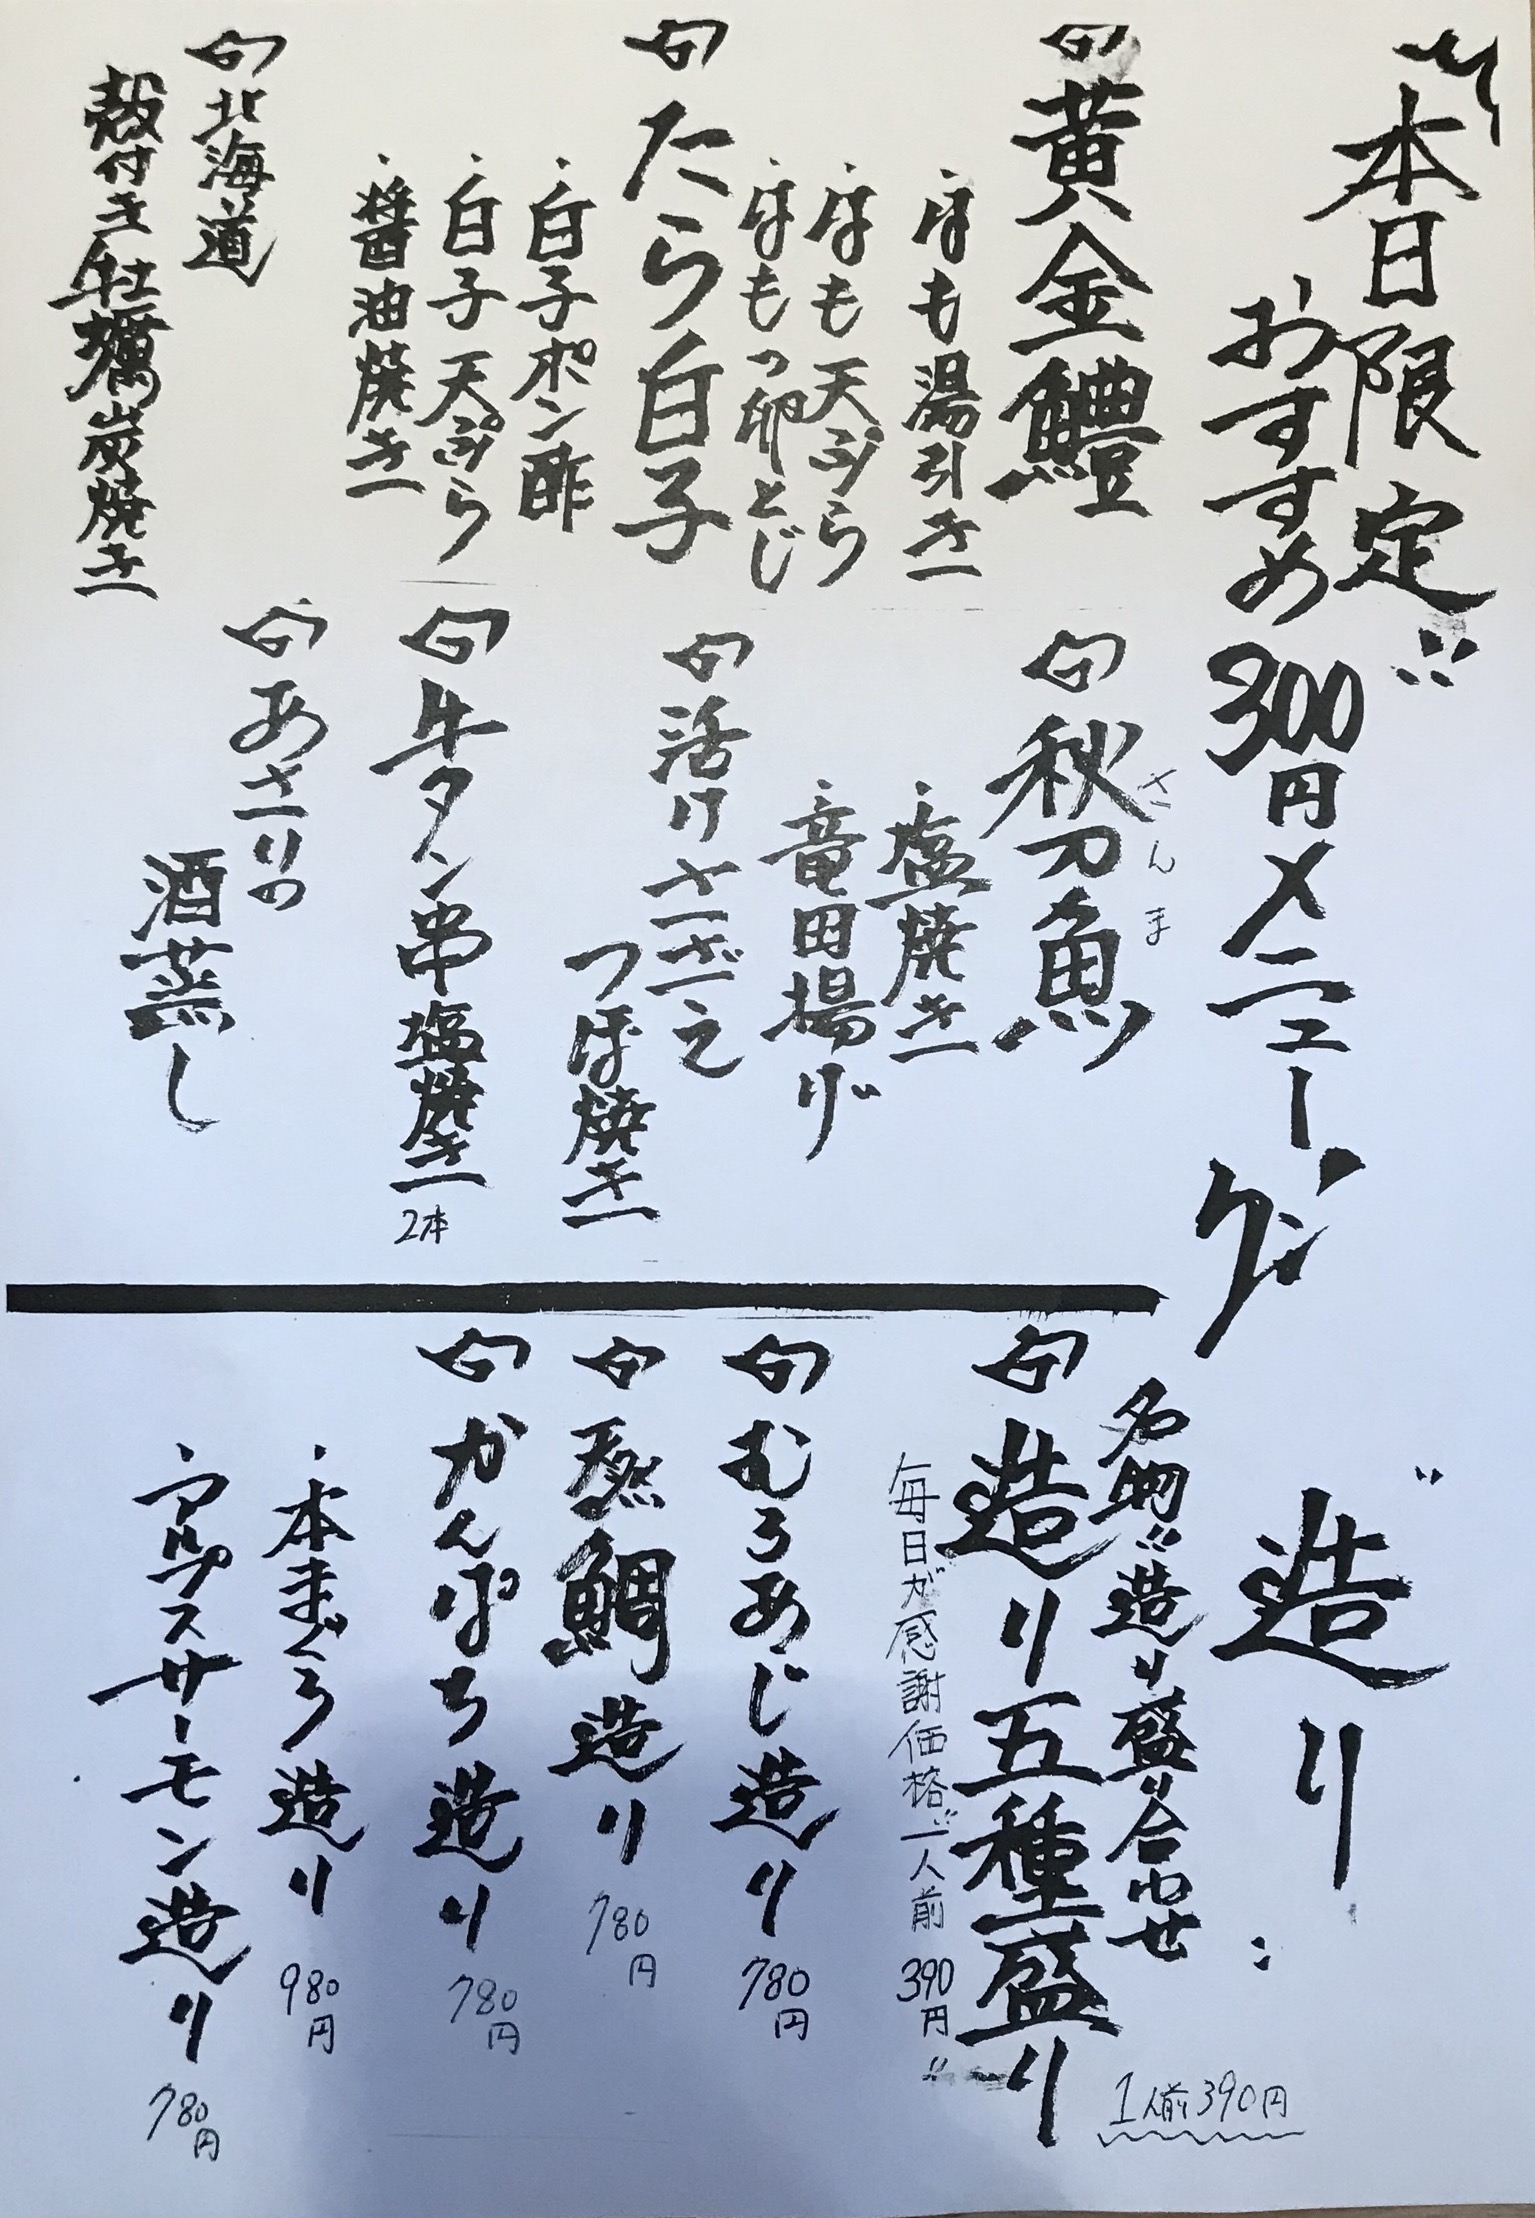 本日限定
おすすめ300円メニュー
黄金鱧
・はも湯引き
・はも天ぷら
・はもつ卵とじ
たら白子
・白子ポン酢
・白子天ぷら
・醤油焼き
北海道
殻付き牡蠣炭焼き
秋刀魚
さんま
・塩焼き
・竜田揚げ
活けさざえ
つぼ焼き
牛タン串塩焼き
2本
あさりの
酒蒸し
"造り"
名物"造り盛り合わせ
1人前390円
造り五種盛り
毎日が感謝価格"一人前390円"
むろあじ造り 780円
天然鯛造り 780円
かんぱち造り 780円
・本まぐろ造り 980円
・アルプスサーモン造り 780円